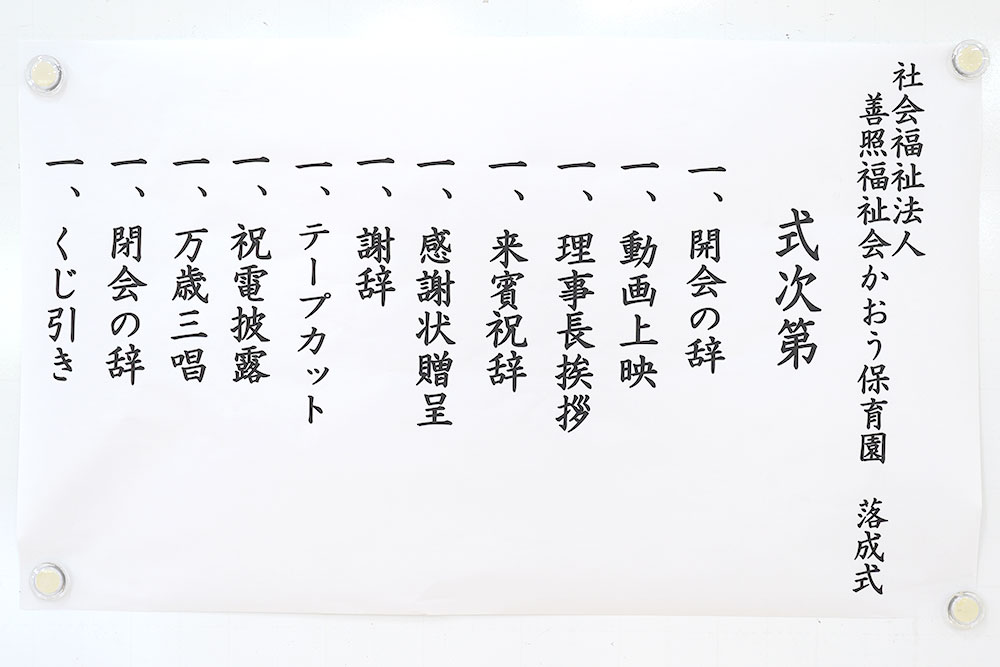 社会福祉法人
善照福祉会かおう保育園　落成式
式次第
一、開会の辞
一、動画上映
一、理事長挨拶
一、来賓祝辞
一、感謝状贈呈
一、謝辞
一、テープカット
一、祝電披露
一、万歳三唱
一、閉会の辞
一、くじ引き